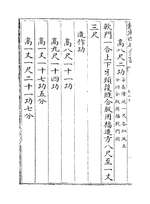 高八尺二功
軟門一合上下牙頭護縫合版用楅造方八尺至一丈
三尺
造作功
高八尺一十一功
高九尺一十四功
高一丈一十七功五分
高一丈一尺二十一功七分